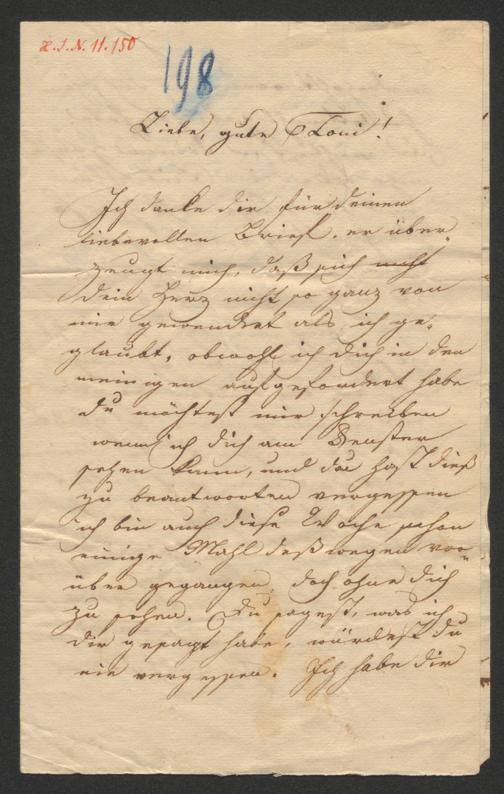 H. I. N. 11.150
198
Liebe, gute Toni!
Ich danke dir für deinen
liebevollen Brief. er über-
zeugt mich, daß sich nicht
dein Herz nicht so ganz von
mir gewendet als ich ge-
glaubt, obwohl ich dich in den
meinigen aufgefordert habe
du möchtest mir schreiben
wenn ich dich am Fenster
sehen kann, und du hast dieß
zu beantworten vergessen
ich bin auch diese Woche schon
einige Mahl deßwegen vor-
über gegangen, doch ohne dich
zu sehen. Du sagest, was ich
dir gesagt habe, würdest du
nie vergessen. Ich habe dir